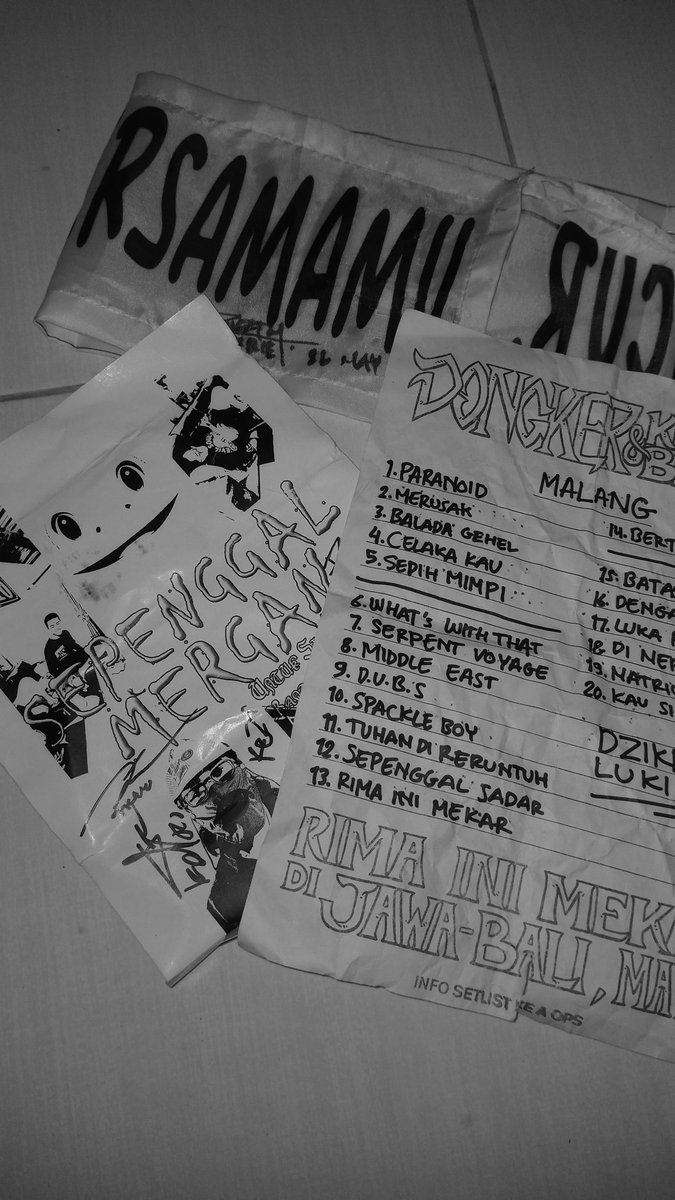 RSAMAMU
CUR
26 MAY
SEPENGGAL
MERGANA
DONGKER
&
MALANG
1. PARANOID
2. MERUSAK
3. BALADA GRHEL
4. CELAKA KAU
5. SEPIH MIMPI
6. WHAT'S WITH THAT
7. SERPENT VOYAGE
8. MIDDLE EAST
9. D.U.B.S
10. SPACKLE BOY
11. TUHAN DI RERUNTUH
12. SEPENGGAL SADAR
13. RIMA INI MEKAR
14. BERT
15. BATAS
16. DENGA
17. LUKA
18. DI NER
19. NATRIU
20. KAU SI
DZIKI
LUKI
RIMA INI MEKA
DI JAWA-BALI, MA
INFO SETLIST KE A OPS